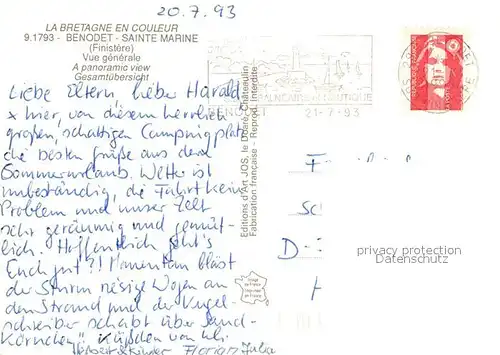 20.7.93
LA BRETAGNE EN COULEUR
9.1793 - BENODET - SAINTE MARINE
(Finistère)
Vue générale
A panoramic view
Gesamtübersicht
Liebe Eltern, lieber Harald
x hier, von diesem herrlich
großen, schattigen Campingplatz
die besten Grüße aus dem
Sommerurlaub. Wetter ist
unbeständig, die Fahrt kein
Problem und unser Zelt
sehr geräumig und gemüt-
lich. Hoffentlich geht's
Euch gut?! Momentan bläst
der Sturm riesige Wogen an
den Strand und der Kugel-
schreiber schabt über Sand-
Körnchen". Küßchen von
Florian Julia
Editions d'Art JOS, le Doaré, Châteaulin
Fabrication française - Reprod. interdite
BENODET
NAUTIQUE
21-7-93
REPUBLIQUE FRANÇAISE
F
Sc
D
privacy protection
Datenschutz